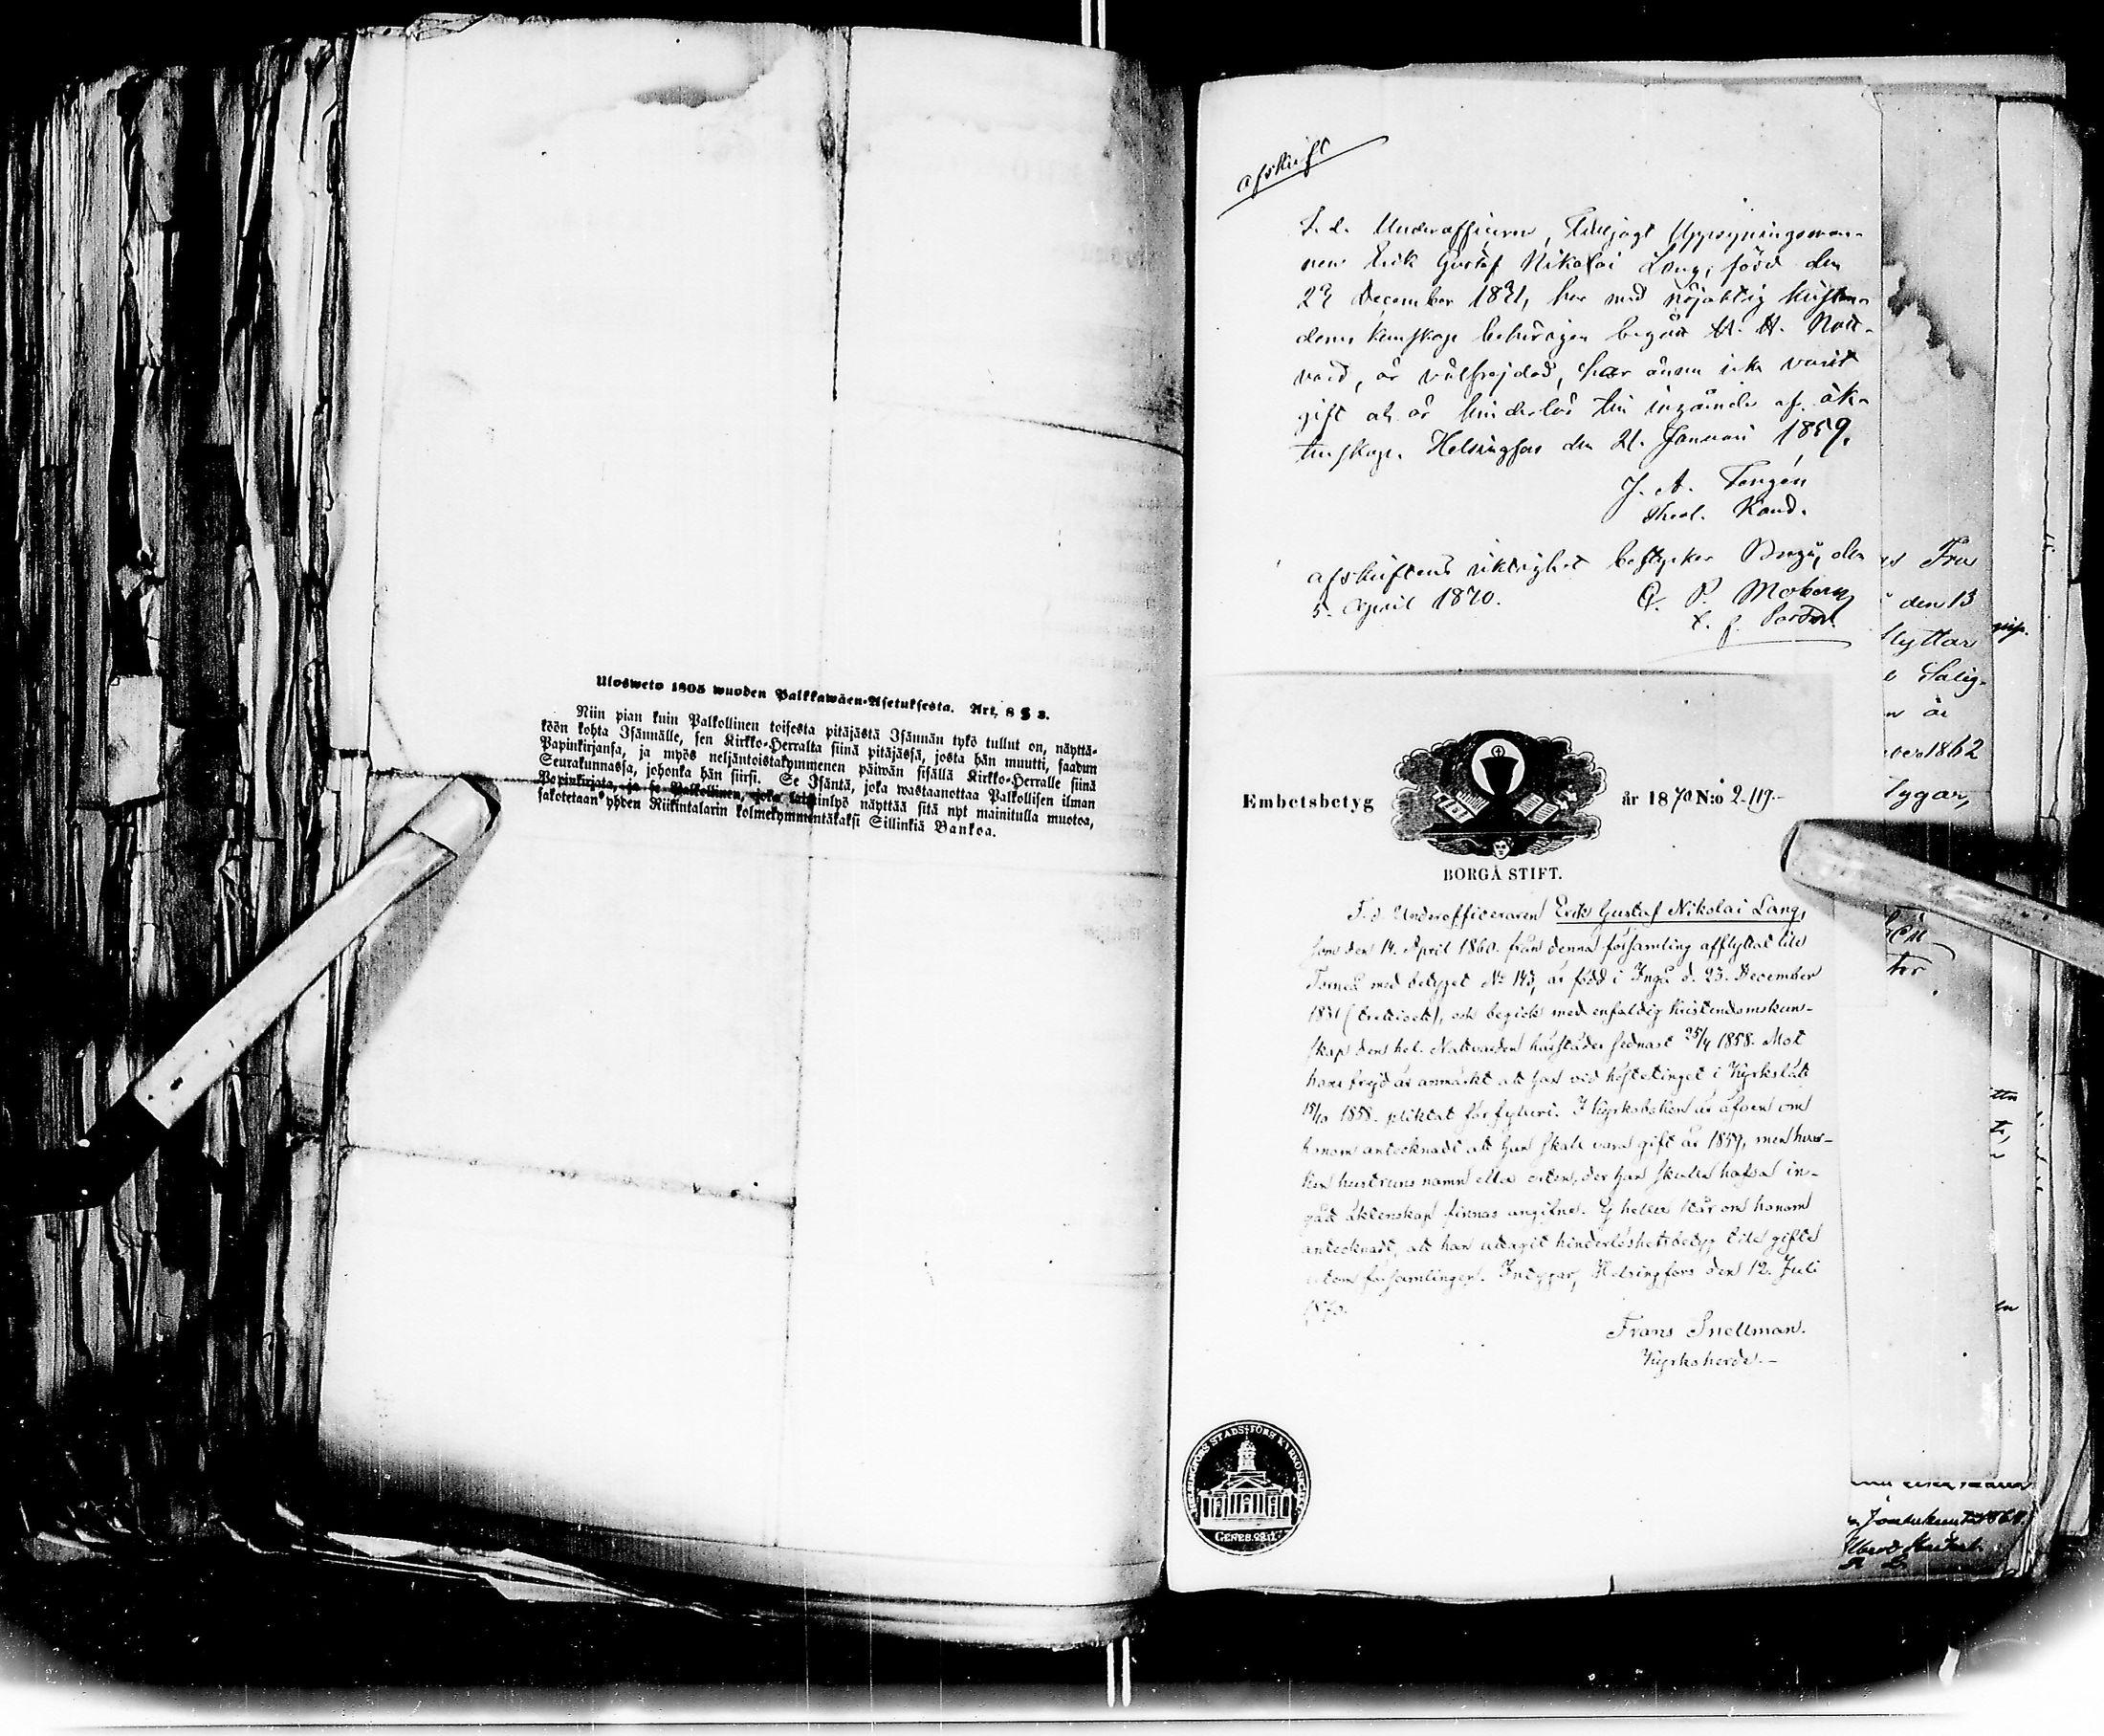 Ulosweto 1805 wuoden Palkkawäen-Asetuksesta. Art. 8 § 2.
Niin pian kuin Palkollinen toisesta pitäjästä Isännän tykö tullut on, näyttä-
köön kohta Isännälle, sen Kirkko-Herralta siinä pitäjässä, josta hän muutti, saadun
Papinkirjansa, ja myös neljäntoistakymmenen päiwän sisällä Kirkko-Herralle siinä
Seurakunnassa, johonka hän siirsi. Se Isäntä, joka wastaanottaa Palkollisen ilman
Papinkirjata, ja se Palkollinen, joka laiminlyö näyttää sitä nyt mainitulla muotoa,
sakotetaan yhden Riikintalarin kolmekymmentäkaksi Sillinkiä Bankoa.
afskrift
F. d. Underofficeren, Uppsyningsman-
nen Erik Gustaf Nikolai Lang, född den
23 December 1831, har med nöjaktig kristen-
doms kunskap behörigen begått H. H. Natt-
vard, är välfrejdad, har änsen icke varit
gift och är hinderlös till ingående af äk-
tenskap. Helsingfors den 21 Januari 1859.
J. A. Tengén
Theol. Kand.
afskriftens riktighet bestyrker Ingå, den
5. April 1870.
G. P. Moberg
Embetsbetyg år 1870 N:o 2119.
BORGÅ STIFT.
F. d. Underofficeraren Erik Gustaf Nikolai Lang,
som den 14. April 1860 från denna församling afflyttat till
Torneå med betyget No 143, är född i Ingå d. 23. December
1831 (trettioett), och begick med enfaldig kristendomskun-
skap den hel. Nattvarden härstädes sednast 25/4 1858. Mot
hans frejd är anmärkt att han vid höstetinget i Kyrkslätt
15/10 1858. pliktat för fylleri. I Kyrkoboken är äfven om
honom antecknadt att han skall vara gift år 1859, men hvar-
ken hustruns namn eller orten, der han skulle hafva in-
gått äktenskap finnas angifne. Ej heller står om honom
antecknadt, att han uttagit hinderlöshetsbetyg till gifte
utom församlingen. Intygar, Helsingfors den 12. Juli
1870.
Frans Snellman.
Kyrkoherde.
HELSINGFORS STADS FÖRS KYRKO SIGILL
GENES. 28.17
Fru
den 13
flyttar
Salig-
är
1862